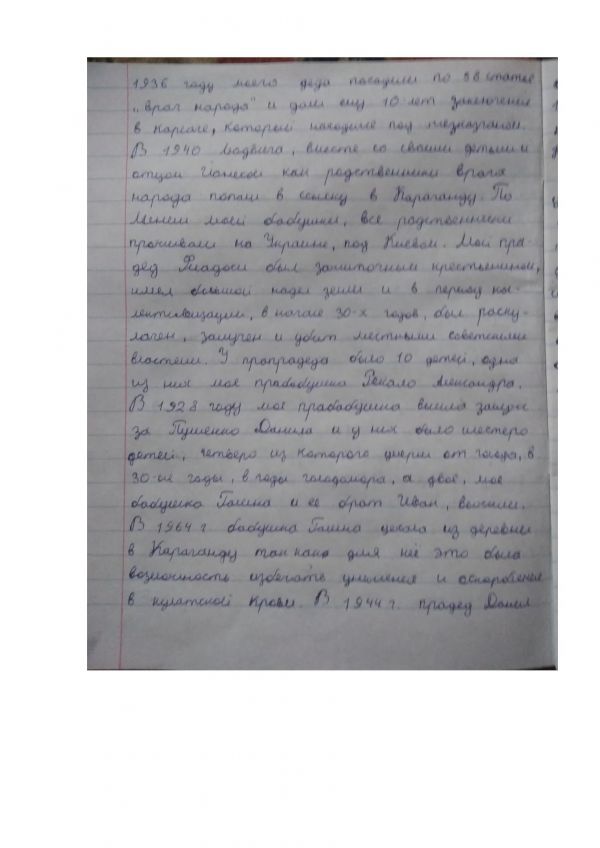 1936 году моего деда посадили по 58 статье
„враг народа" и дали ещё 10 лет заключения
в Карлаге, который находился под Жезказганом.
В 1940 Людвига, вместе со своими детьми и
отцом как родственники врага
народа попали в ссылку в Караганду. По
линии моей бабушки, все родственники
проживали на Украине, под Киевом. Мой пра-
дед был зажиточным крестьянином,
имел большой надел земли и в период кол-
лективизации, в начале 30-х годов, был раску-
лачен, замучен и убит местными советскими
властями. У прапрадеда было 10 детей, одна
из них моя прабабушка Рекало Александра.
В 1928 году моя прабабушка вышла замуж
за Пушенко Данила и у них было шестеро
детей, четверо из которого умерли от голода, в
30-ые годы, в годы голодомора, а двое, моя
бабушка Галина и её брат Иван, выжили.
В 1964 г бабушка Галина уехала из деревни
в Караганду так как для неё это была
возможность избегать унижения и оскорбления
в кулатской крови. В 1944 г. прадед Данил